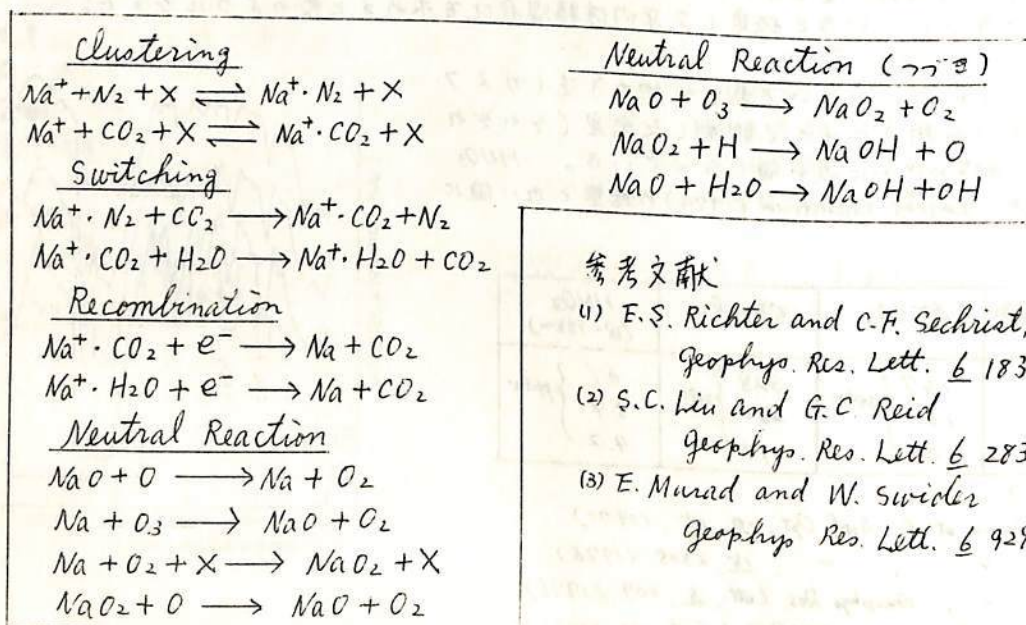 Clustering
Na⁺ + N₂ + X ⇌ Na⁺·N₂ + X
Na⁺ + CO₂ + X ⇌ Na⁺·CO₂ + X
Switching
Na⁺·N₂ + CO₂ → Na⁺·CO₂ + N₂
Na⁺·CO₂ + H₂O → Na⁺·H₂O + CO₂
Recombination
Na⁺·CO₂ + e⁻ → Na + CO₂
Na⁺·H₂O + e⁻ → Na + CO₂
Neutral Reaction
NaO + O → Na + O₂
Na + O₃ → NaO + O₂
Na + O₂ + X → NaO₂ + X
NaO₂ + O → NaO + O₂
Neutral Reaction (つづき)
NaO + O₃ → NaO₂ + O₂
NaO₂ + H → NaOH + O
NaO + H₂O → NaOH + OH
参考文献
(1) E.S. Richter and C.F. Sechrist,
Geophys. Res. Lett. 6 183
(2) S.C. Liu and G.C. Reid
Geophys. Res. Lett. 6 283
(3) E. Murad and W. Swider
Geophys Res. Lett. 6 929